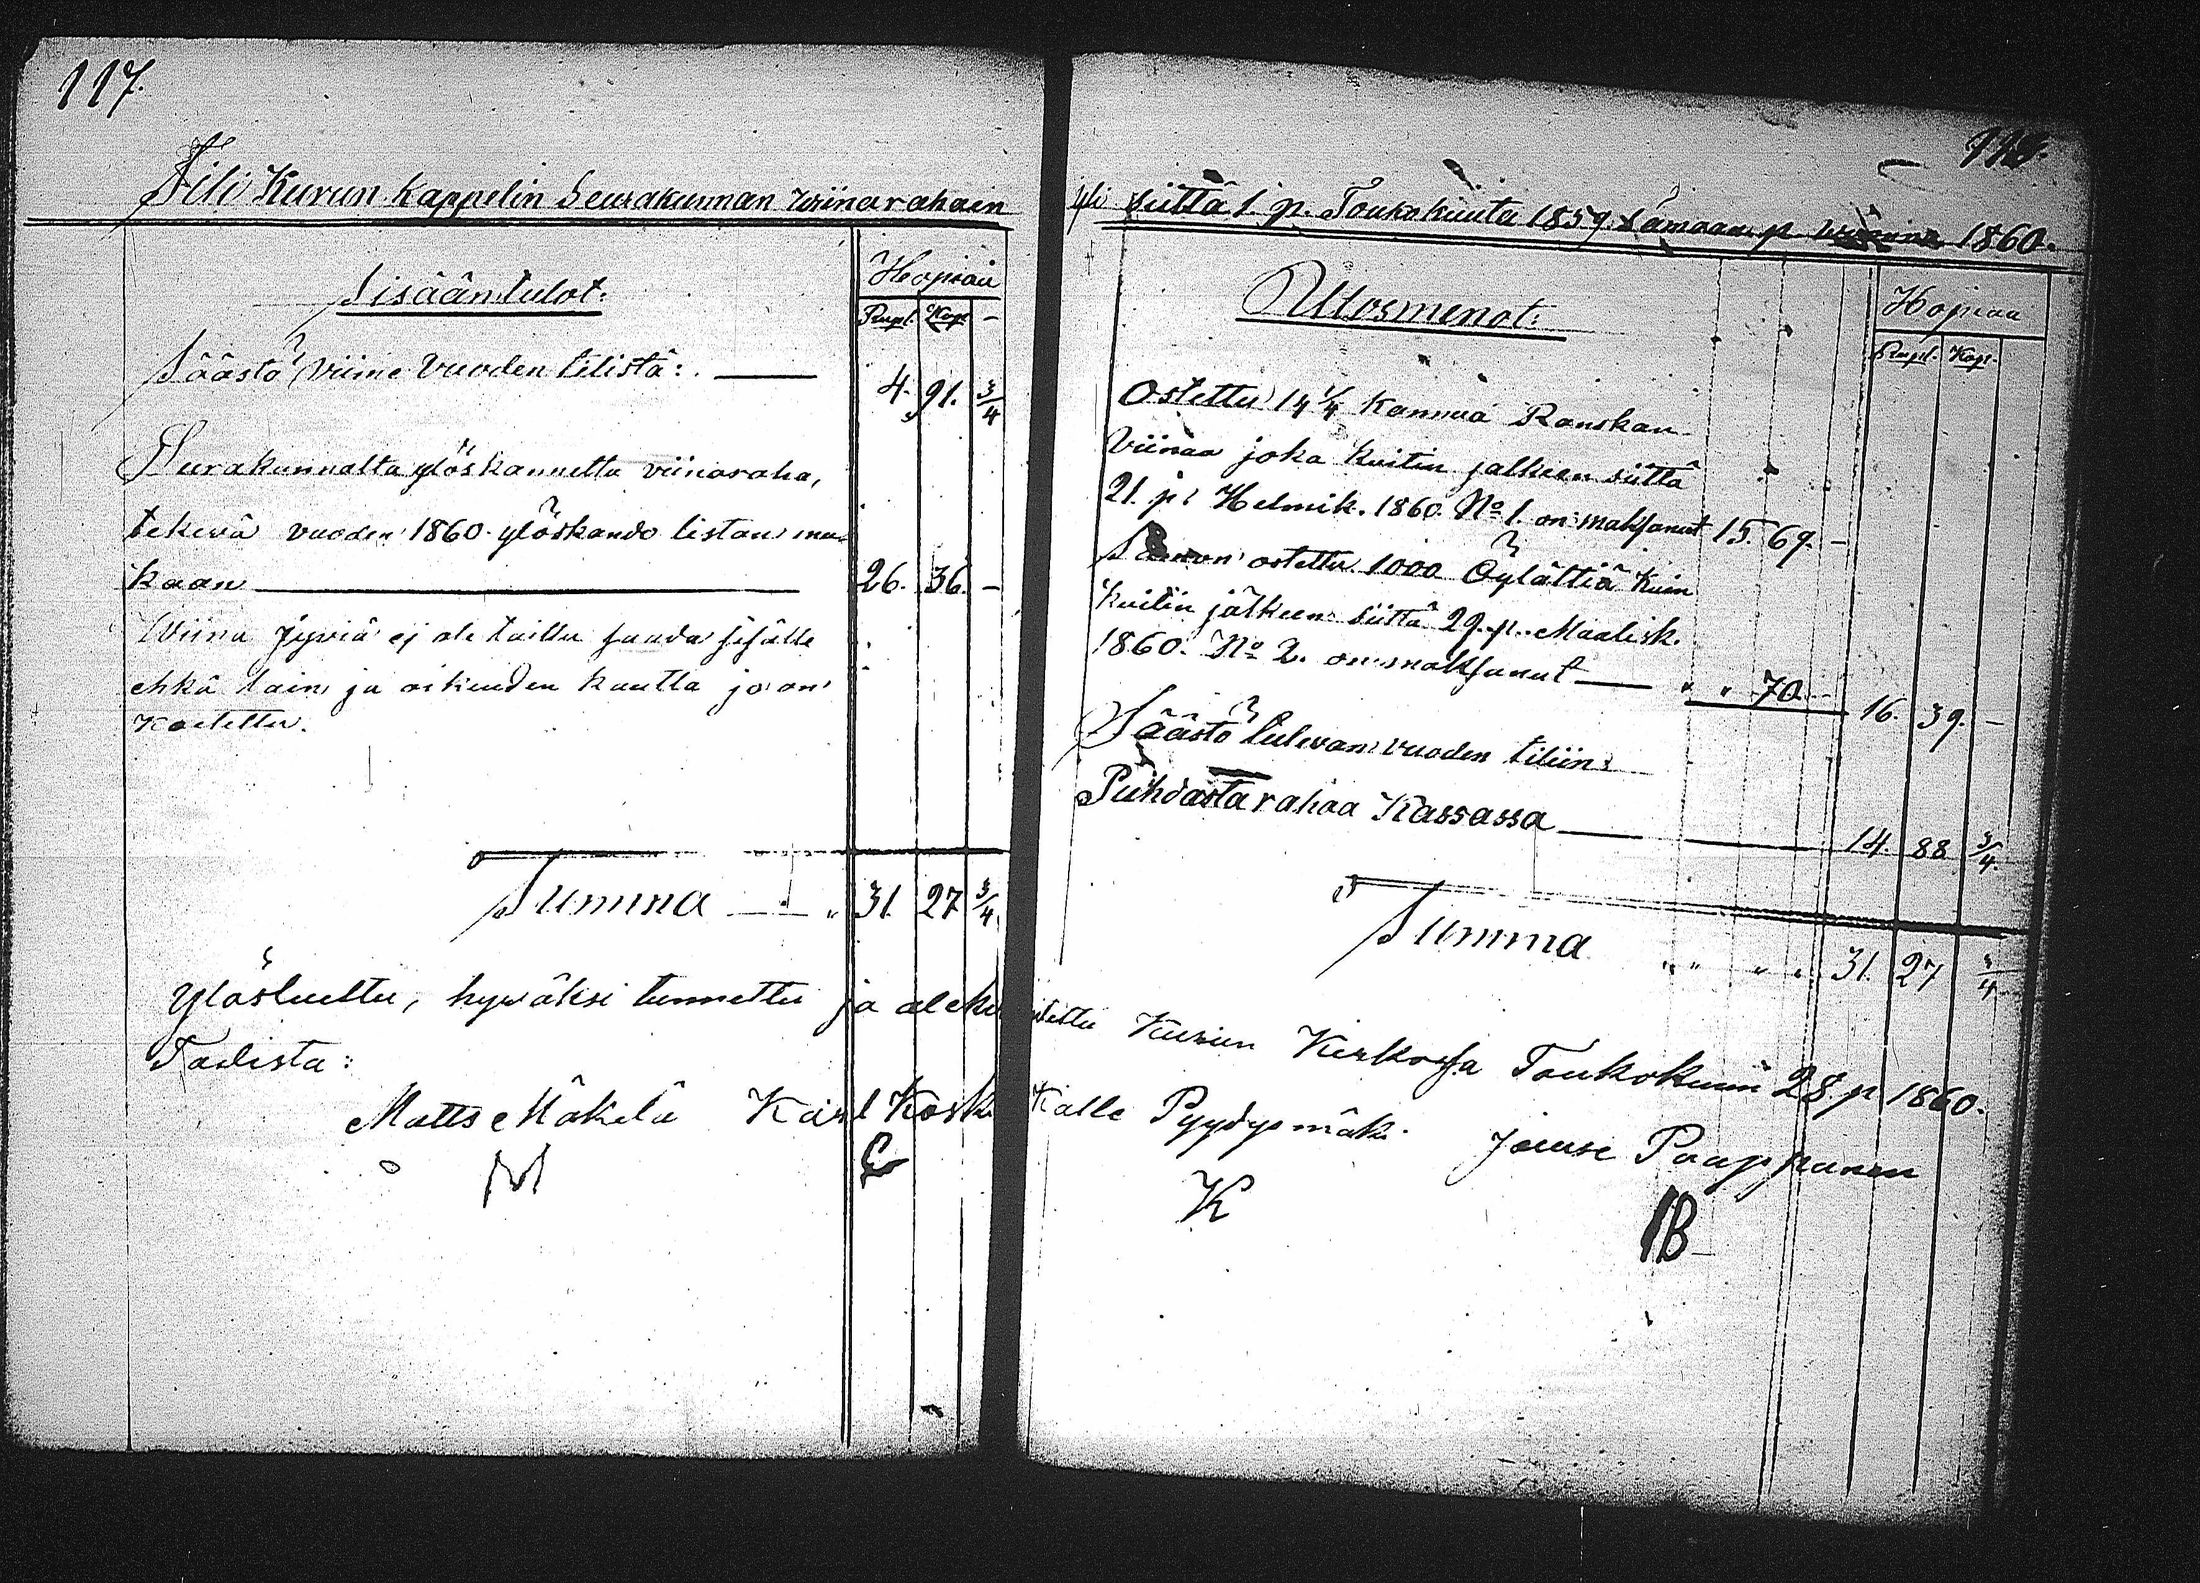 117.
Tili Kurun Kappelin Seurakunnan wiinarahain
Sisääntulot:
Hopiaa
Rupl. Kop. –
Säästö viime vuoden tilistä: 4. 91. 3/4
Seurakunnalta ylöskannettu viinaraha,
tekevä vuoden 1860 ylöskando listan mu-
kaan 26. 36. –
Wiina Jyviä ej ole taittu saada sisälle
ehkä lain ja oikeuden kautta jo on
koetettu.
Summa 31. 27 3/4
Ylösluettu, hyväksi tunnettu ja aleku
Todista:
Matts Mäkelä Karl Koski
M
118.
yli siittä 1. p. Toukokuuta 1859. Samaan p. 1860.
Ulosmenot:
Hopiaa
Rupl. Kop.
Ostettu 14 1/4 Kannua Ranskan
Viinaa joka kuitin jälkeen siittä
21. p: Helmik. 1860. No 1. on maksanut 15. 69. –
Samon ostettu 1000 Öylättiä kuin
kuitin jälkeen siittä 29. p. Maalisk.
1860. No 2. on maksanut " " 70. – 16. 39. –
Säästö tulevan vuoden tiliin:
Puhdasta rahaa Kassassa 14. 88 3/4.
Summa " " " " 31. 27 3/4
Kurun Kirkossa Toukokuun 28. p. 1860.
Kalle Pyydysmäki Jouse Paappanen
K
IB